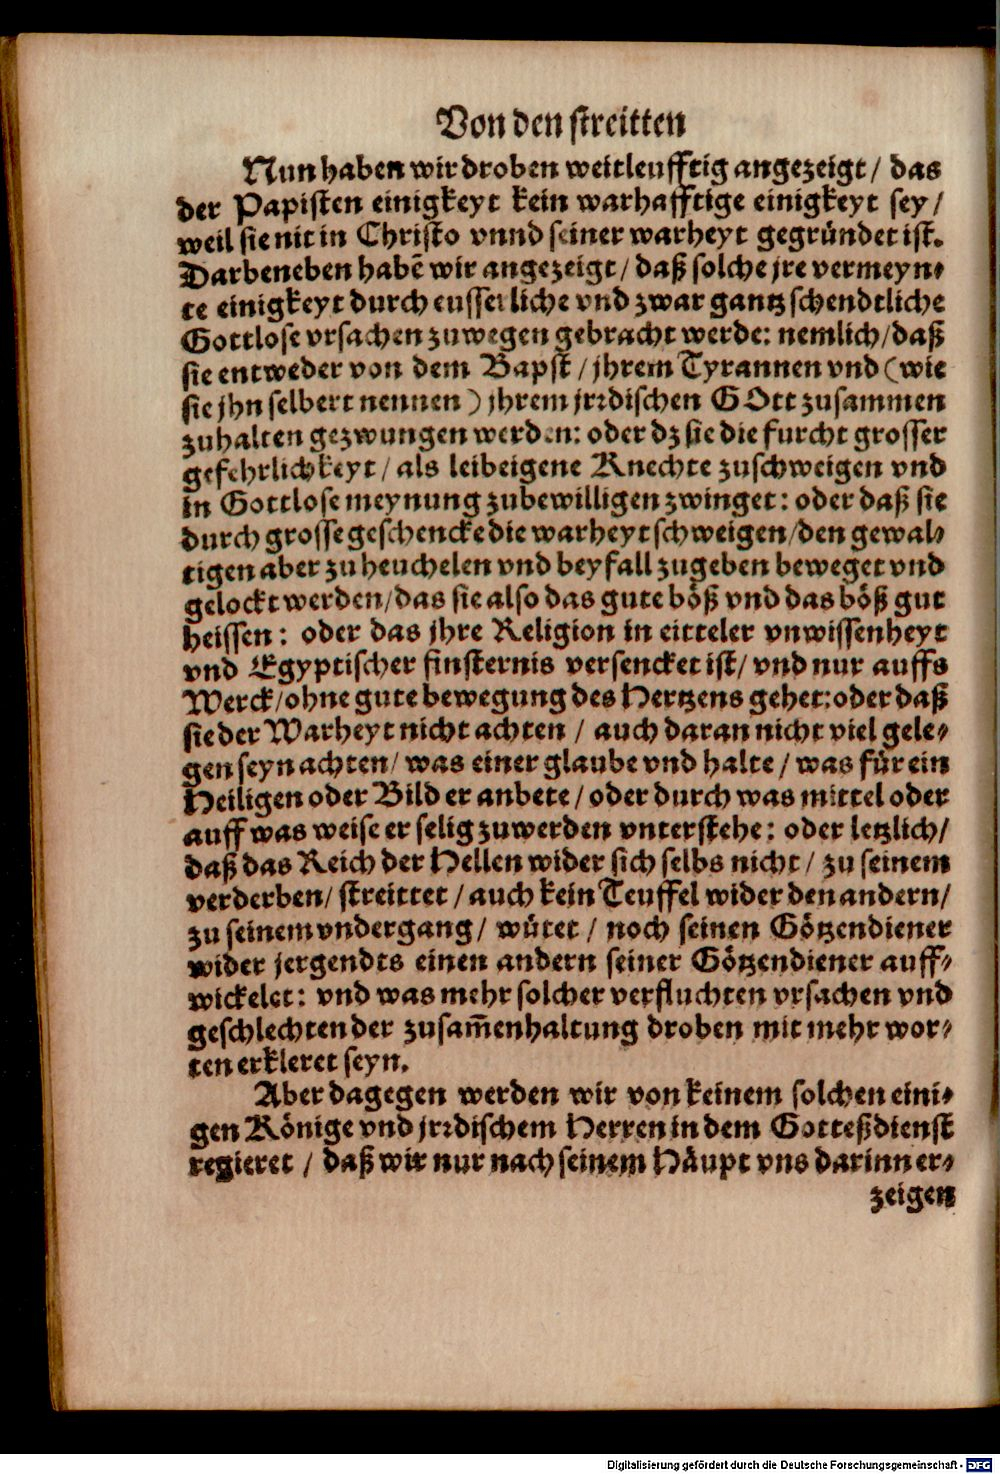 Von den streitten
Nun haben wir droben weitleufftig angezeigt / das
der Papisten einigkeyt kein warhafftige einigkeyt sey /
weil sie nit in Christo vnnd seiner warheyt gegründet ist.
Darbeneben habē wir angezeigt / daß solche jre vermeyn⸗
te einigkeyt durch eusserliche vnd zwar gantz schendtliche
Gottlose vrsachen zuwegen gebracht werde: nemlich / daß
sie entweder von dem Bapst / jhrem Tyrannen vnd (wie
sie jhn selbert nennen) jhrem jrꝛdischen GOtt zusammen
zuhalten gezwungen werden: oder dz sie die furcht grosser
gefehrlichkeyt / als leibeigene Knechte zuschweigen vnd
in Gottlose meynung zubewilligen zwinget: oder daß sie
durch grosse geschencke die warheyt schweigen / den gewal⸗
tigen aber zu heuchelen vnd beyfall zugeben beweget vnd
gelockt werden / das sie also das gute böß vnd das böß gut
heissen: oder das jhre Religion in eitteler vnwissenheyt
vnd Egyptischer finsternis versencket ist / vnd nur auffs
Werck / ohne gute bewegung des Hertzens gehet: oder daß
sie der Warheyt nicht achten / auch daran nicht viel gele⸗
gen seyn achten / was einer glaube vnd halte / was für ein
Heiligen oder Bild er anbete / oder durch was mittel oder
auff was weise er selig zuwerden vnterstehe: oder letzlich /
daß das Reich der Hellen wider sich selbs nicht / zu seinem
verderben / streittet / auch kein Teuffel wider den andern /
zu seinem vndergang / wütet / noch seinen Götzendiener
wider jergendts einen andern seiner Götzendiener auff⸗
wickelet: vnd was mehr solcher verfluchten vrsachen vnd
geschlechten der zusam̄enhaltung droben mit mehr wor⸗
ten erkleret seyn.
Aber dagegen werden wir von keinem solchen eini⸗
gen Könige vnd jrꝛdischem Herren in dem Gotteßdienst
regieret / daß wir nur nach seinem Häupt vns darinn er⸗
zeigen
Digitalisierung gefördert durch die Deutsche Forschungsgemeinschaft - DFG